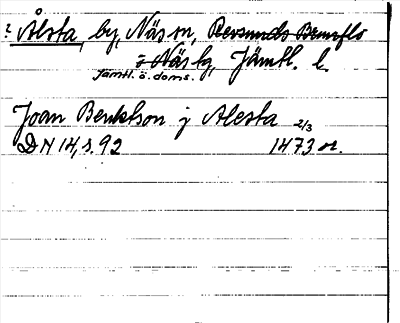 ? Ålsta, by, Näs sn, Revsunds Brunflo
o Näs tg, Jämtl. l.
Jämtl. ö. doms.
Joan Benktson j Alesta 2/3
DN 14, s. 92 1473 or.